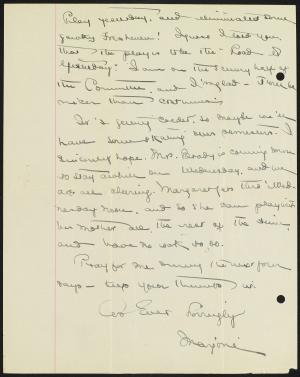 Play yesterday, and eliminated some
Freshmen! I guess I told you
that the play is to be the "Road to
Yesterday". I am on the Scenery half of
the Committee, and I'm glad - it'll be
than costumes.
It's getting colder, so maybe we'll
have some skating over
sincerely hope. Mrs. Brady is coming
to stay awhile on Wednesday, and we
are all Margaret gets there Wed-
nesday noon, and so she can play with
her mother the rest of the time,
and have no work to do.
Pray for me during the next four
days - keep your thumbs up.
As Ever Lovingly
Marjorie